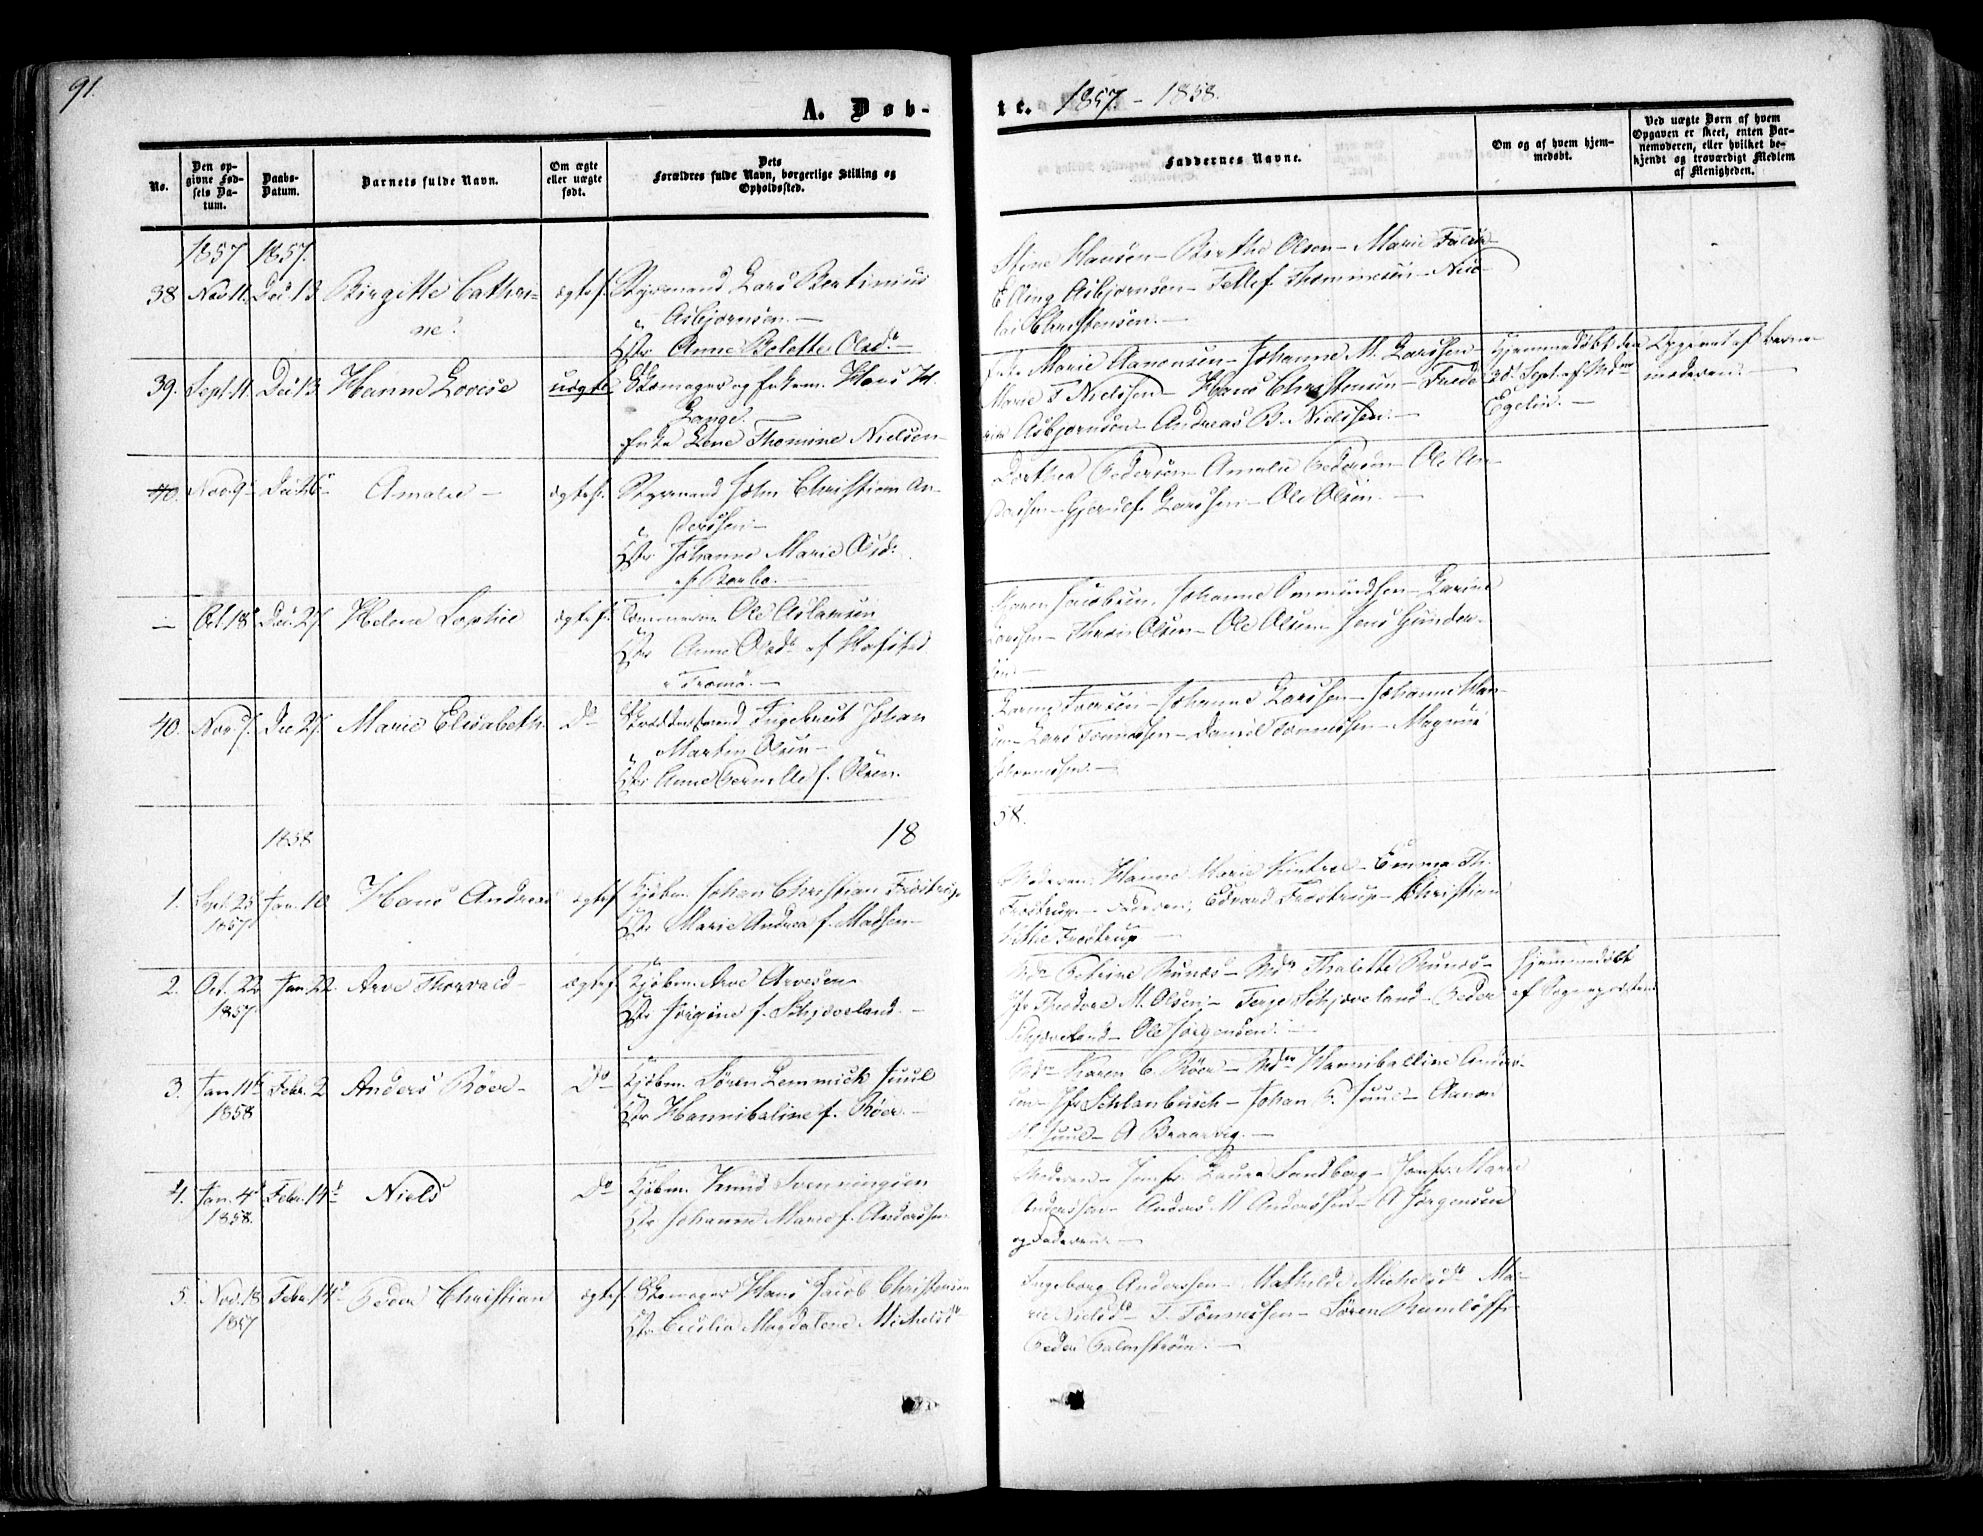 91.
A. Døb-
te. 1857. - 1858.
No.
Den op-
givne Fød-
sels Da-
tum.
Daabs-
Datum.
Barnets fulde Navn.
Om ægte
eller uægte
født.
Dets
Forældres fulde Navn, borgerlige Stilling og
Opholdssted.
Faddernes Navne.
Om og af hvem hjem-
medøbt.
Ved uægte Børn af hvem
Opgaven er skeet, enten Bar-
nemoderen, eller hvilket be-
kjendt og troværdigt Medlem
af Menigheden.
1857 1857.
38. Nov. 11. Dec. 13 Birgitte Cathri- ægtef. Styrmand Lars Bertinius
ne. Asbjørnsen. —
Anne Belette Olsdr. —
Stine Hansen - Birthe Olsen - Marie
Elling Asbjørnsen - Tellef Thommesen - Nico-
lai Christensen. —
39. Sept. 11. Dec. 13 Hanne Lovise uægte Skomager og Hans H.
Lange.
Lene Thomine Nielsen
Marie Aanonsen - Johanne M. Larssen -
Marie T Nielssen - Hans Christensen - Frede-
rik Asbjørnsen - Andreas B. Nielssen. —
Hjemmedøbt den
Sept. af Mdm
Egelin. —
Opgivet af Barne-
moderen. —
40. Nov. 9 Dec. 26 Amalie — ægtef. Styrmand John Christian An-
derssen. —
Johanne Marie Olsdr.
af Barbo. —
Dorthea Pedersen - Amalie Pedersen - Ole An-
derssen - Larssen - Ole Olsen. —
— Oct. 18 Dec. 27. Helene Sophie ægtef. Ole Aslaksen
Anne Olsdr. af Hofsted
Tromø. —
Karen Jacobsen, Johanne Ommundsen - Karine
Larssen - Olsen - Ole Olsen - Jens Gunder-
sen. —
40. Nov. Dec. 27. Marie Elisabeth. Do Ingebret Johan
Martin Olsen -
Anne Pernille f. Olsen.
Iversen - Johanne Larssen - Johanne Han-
sen - Lars Tønnessen - Daniel Tønnessen - Magnus
1858
18
58.
1. Sept. 25 Jan. 10 Hans Andreas ægtef. Kjøbm. Johan Christian Frøstrup
1857
Marie Andrea f. Madsen -
Moderen, Hanne Marie - Emma Th.
Frøstrup - Faderen, Edvard Frøstrup - Christian
Frøstrup
2. Oct. 22 Jan. 22. Arve Thorvald - ægtef. Kjøbm. Arve Arvesen
1857.
Jørgine f. Schjøveland. -
Mdm Petrine - Mdm Thalette
Jfr Theodore M. Olsen - Terje Schjøveland - Peder
Schjøveland - Ole Jørgensen. —
Hjemmedøbt
af Sognepresten.
3. Jan. 11te Febr. 2 Anders Röer - Do Kjøbm. Søren Lemmich Juul
1858
Hannibaline f. Röer. -
Mdm Karen C. Röer - Mdm Hannibaline Ander-
sen - Jfr Schlanbusch - Johan C. Juul - Aanon
H. Juul - A Braarvig. —
4. Jan. 4de Febr. 14de Niels Do Kjøbm. Knud Svenningsen
1858.
Johanne Marie f. Anderssen
Moderen - Jomfr. Laura Sandberg - Jomfr. Marie
Anderssen - Anders M Anderssen - A Jørgensen
og Faderen. —
5. Nov. 18 Febr. 14de Peder Christian ægtef. Skomager Hans Jacob Christensen
1857
Cecilia Magdalene Michelsdr
Ingeborg Anderssen - Mathilde Michelsdr Ma-
rie Nielsdr - T. Tønnessen - Søren
Peder Palmstrøm. —